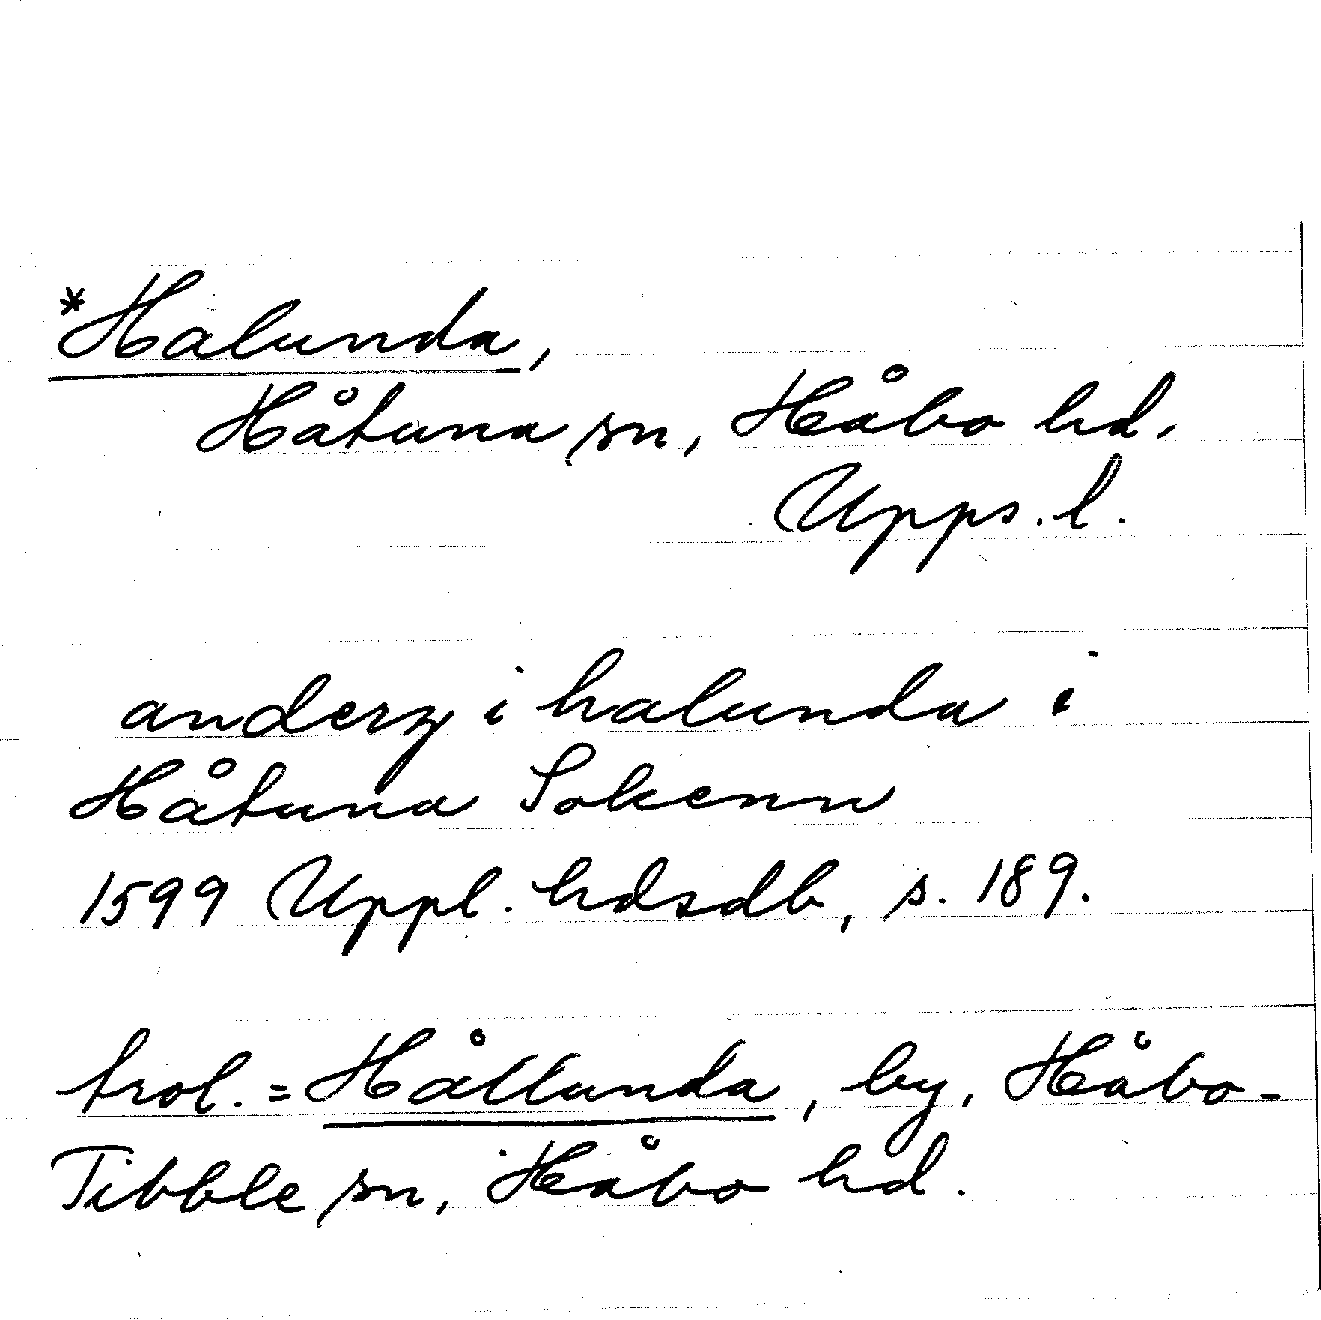 *Halunda,
Håtuna sn, Håbo hd.
Upps. l.
anderz i halunda i
Håtuna Sokenn
1599 Uppl. hdsdb, s. 189.
trol. = Hållunda, by, Håbo-
Tibble sn, Håbo hd.